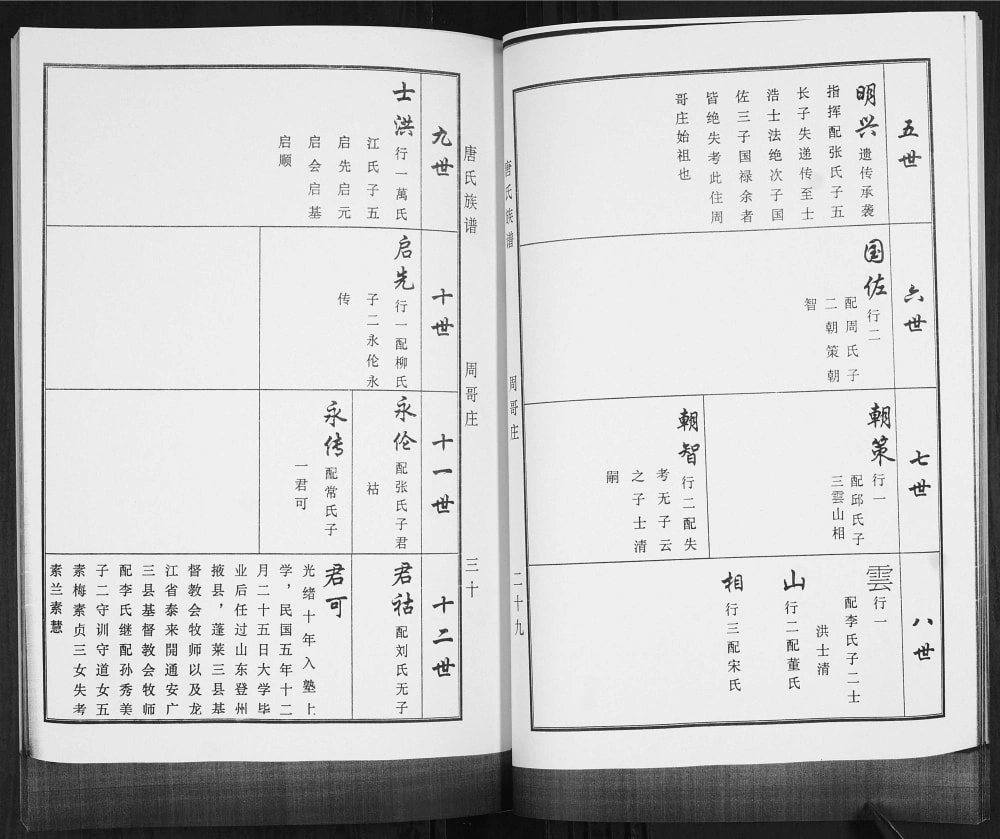 五世
明兴 遗传承袭
指挥配张氏子五
长子失递传至士
浩士法绝次子国
佐三子国禄余者
皆绝失考此住周
哥庄始祖也
六世
国佐 行二
配周氏子
二朝策朝
智
七世
朝策 行一
配邱氏子
三雲山相
朝智 行二配失
考无子云
之子士清
嗣
八世
雲 行一
配李氏子二士
洪士清
山 行二配董氏
相 行三配宋氏
唐氏族谱
周哥庄
二十九
唐氏族谱
周哥庄
三十
九世
士洪 行一萬氏
江氏子五
启先启元
启会启基
启顺
十世
启先 行一配柳氏
子二永伦永
传
十一世
永伦 配张氏子君
祜
永传 配常氏子
一君可
十二世
君祜 配刘氏无子
君可
光绪十年入塾上
学，民国五年十二
月二十五日大学毕
业后任过山东登州
掖县，蓬莱三县基
督教会牧师以及龙
江省泰来開通安广
三县基督教会牧师
配李氏继配孙秀美
子二守训守道女五
素梅素贞三女失考
素兰素慧